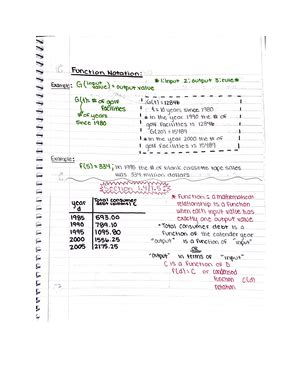 Function Notation:
Example: G(input value) = output value
* 1:input 2: output 3:rule *
G(t): # of golf facilities
t: # of years since 1980
G(t) = 12846
t = 10 years since 1980
* In the year 1990 the # of golf facilities is 12846
G(20) = 15489
* In the year 2000 the # of golf facilities is 15489
Example:
f(5) = 334; in 1985 the # of blank cassette tape sales
was 334 million dollars
year d
Total consumer debt C
1985 593.00
1990 789.10
1995 1095.80
2000 1556.25
2005 2175.25
* Function: a mathematical
relationship is a function
when each input value has
exactly one output value.
* Total consumer debt is a
function of the calendar year
"output" is a function of "input"
OR
"output" in terms of "input"
C is a function of D
f(d) = C or condensed
function C(d)
notation